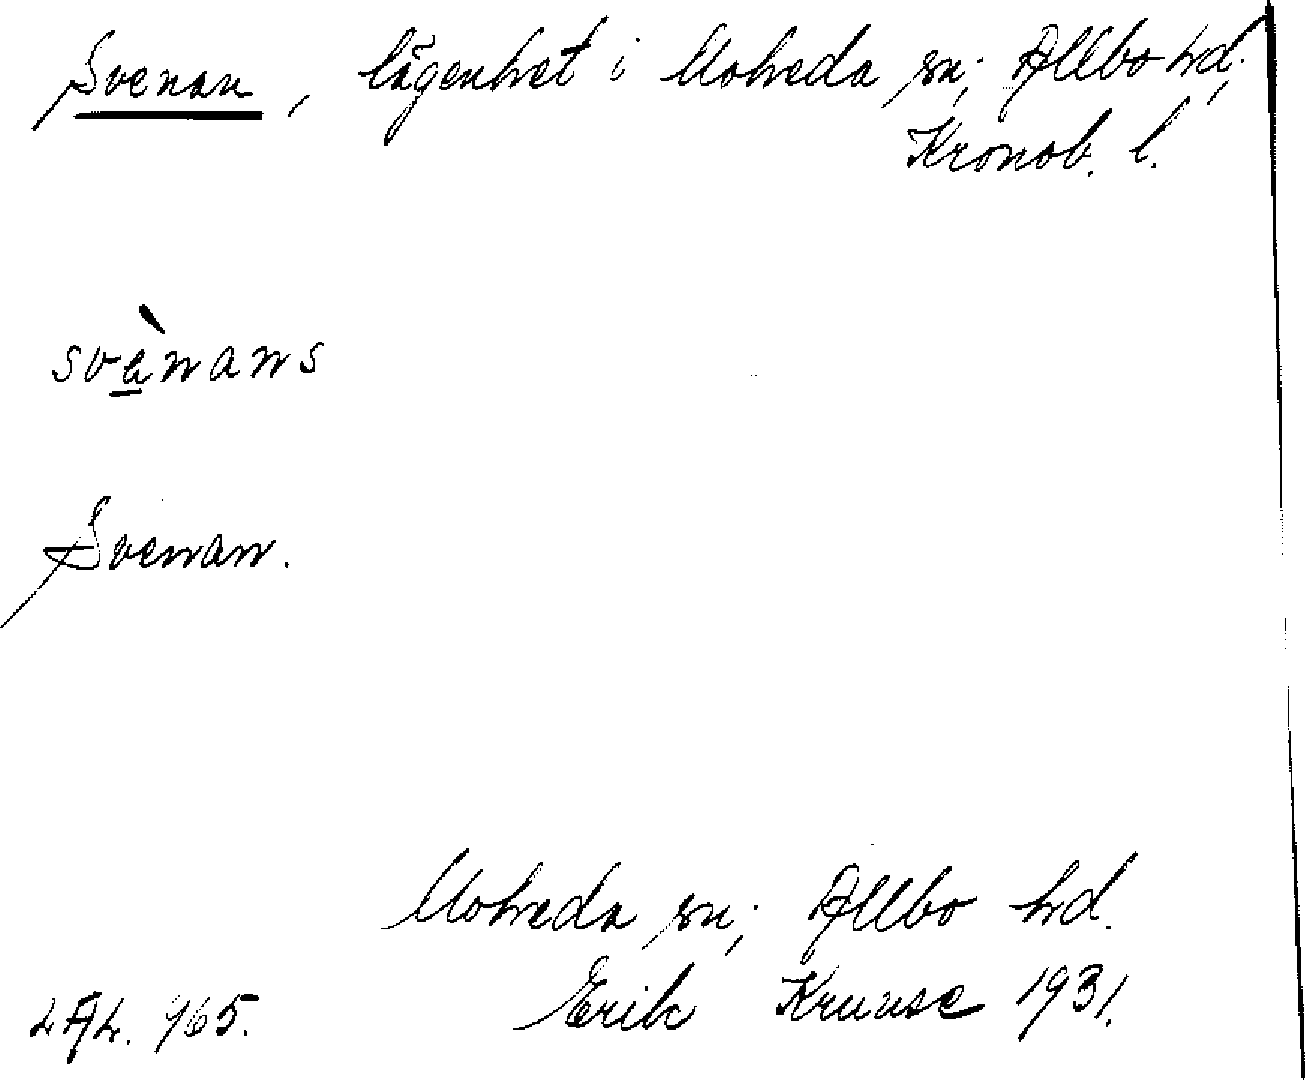 Svenan, lägenhet i Moheda sn; Allbo hd,
Kronob. l.
svànans
Svenan.
Moheda sn; Allbo hd.
LAL. 965. Erik Kruuse 1931.